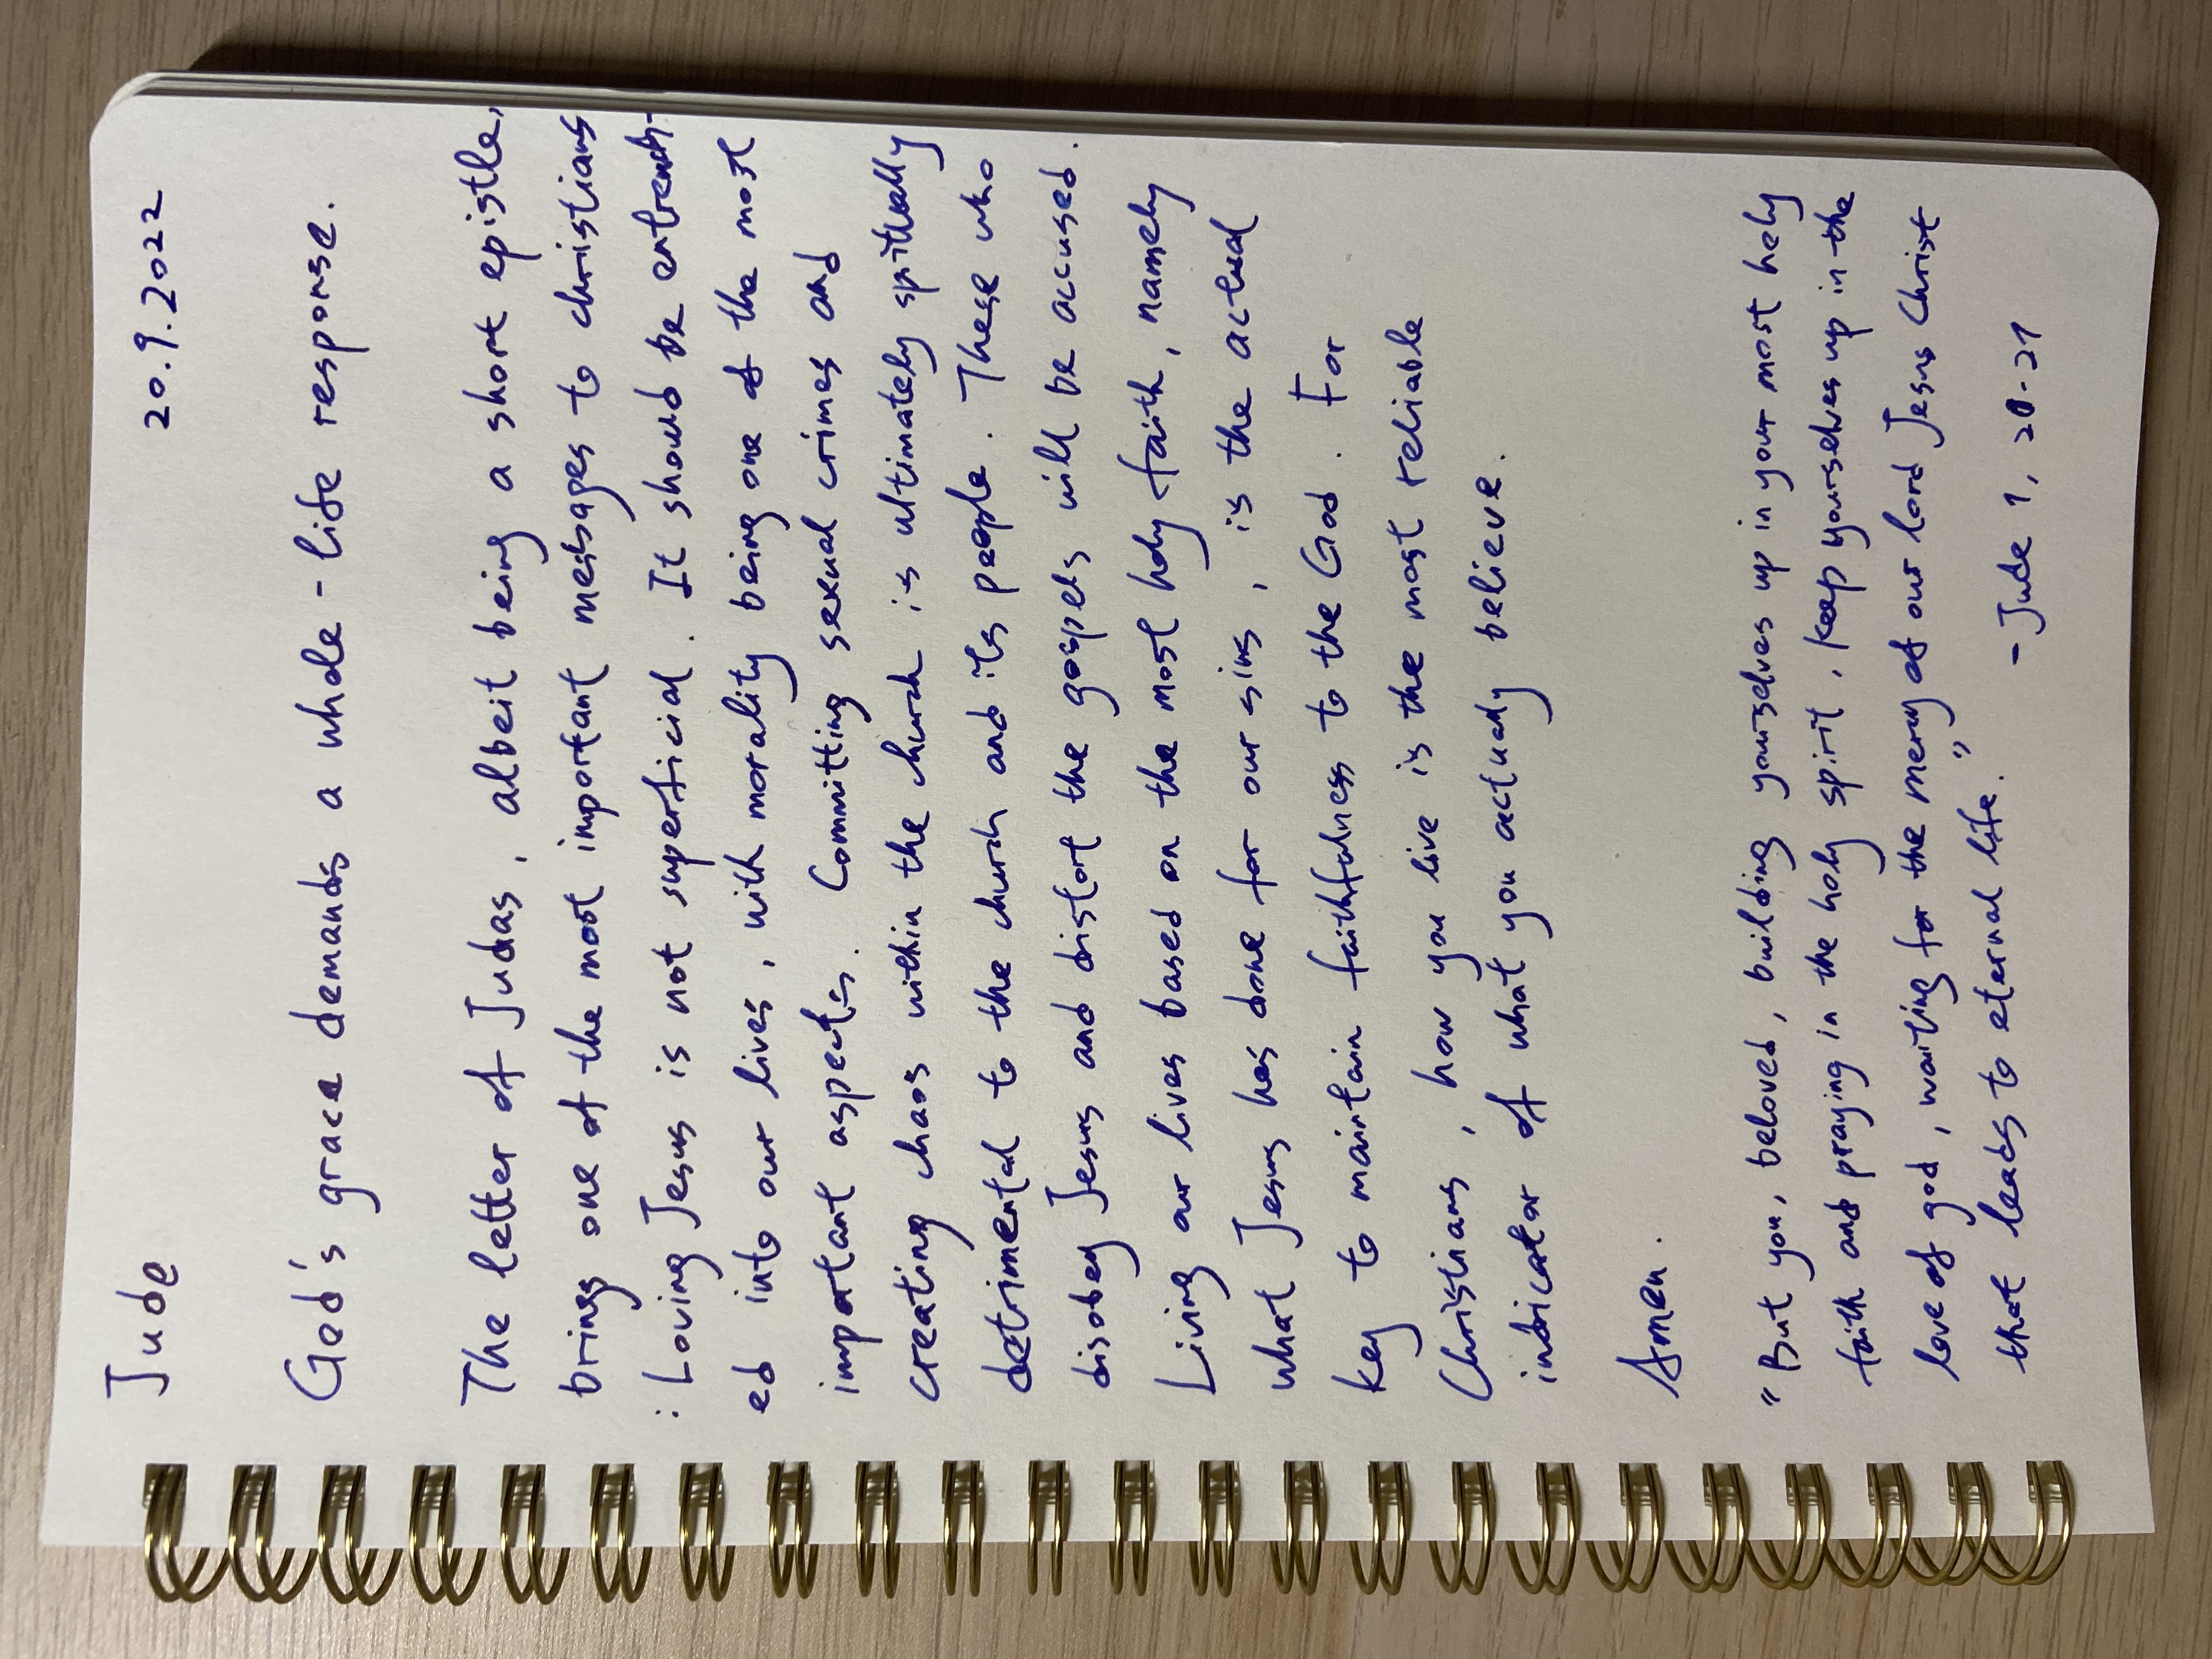 Jude 20.9.2022
God's grace demands a whole-life response.
The letter of Judas, albeit being a short epistle,
brings one of the most important messages to christians
: Loving Jesus is not superficial. It should be entrench-
ed into our lives, with morality being one of the most
important aspects. Committing sexual crimes and
creating chaos within the church is ultimately spritually
detrimental to the church and its people. These who
disobey Jesus and distort the gospels will be accused.
Living our lives based on the most holy faith, namely
what Jesus has done for our sins, is the actual
key to maintain faithfulness to the God. For
Christians, how you live is the most reliable
indicator of what you actually believe.
Amen.
"But you, beloved, building yourselves up in your most holy
faith and praying in the holy spirit, keep yourselves up in the
love of god, waiting for the mercy of our lord Jesus Christ
that leads to eternal life."
- Jude 1, 20-21